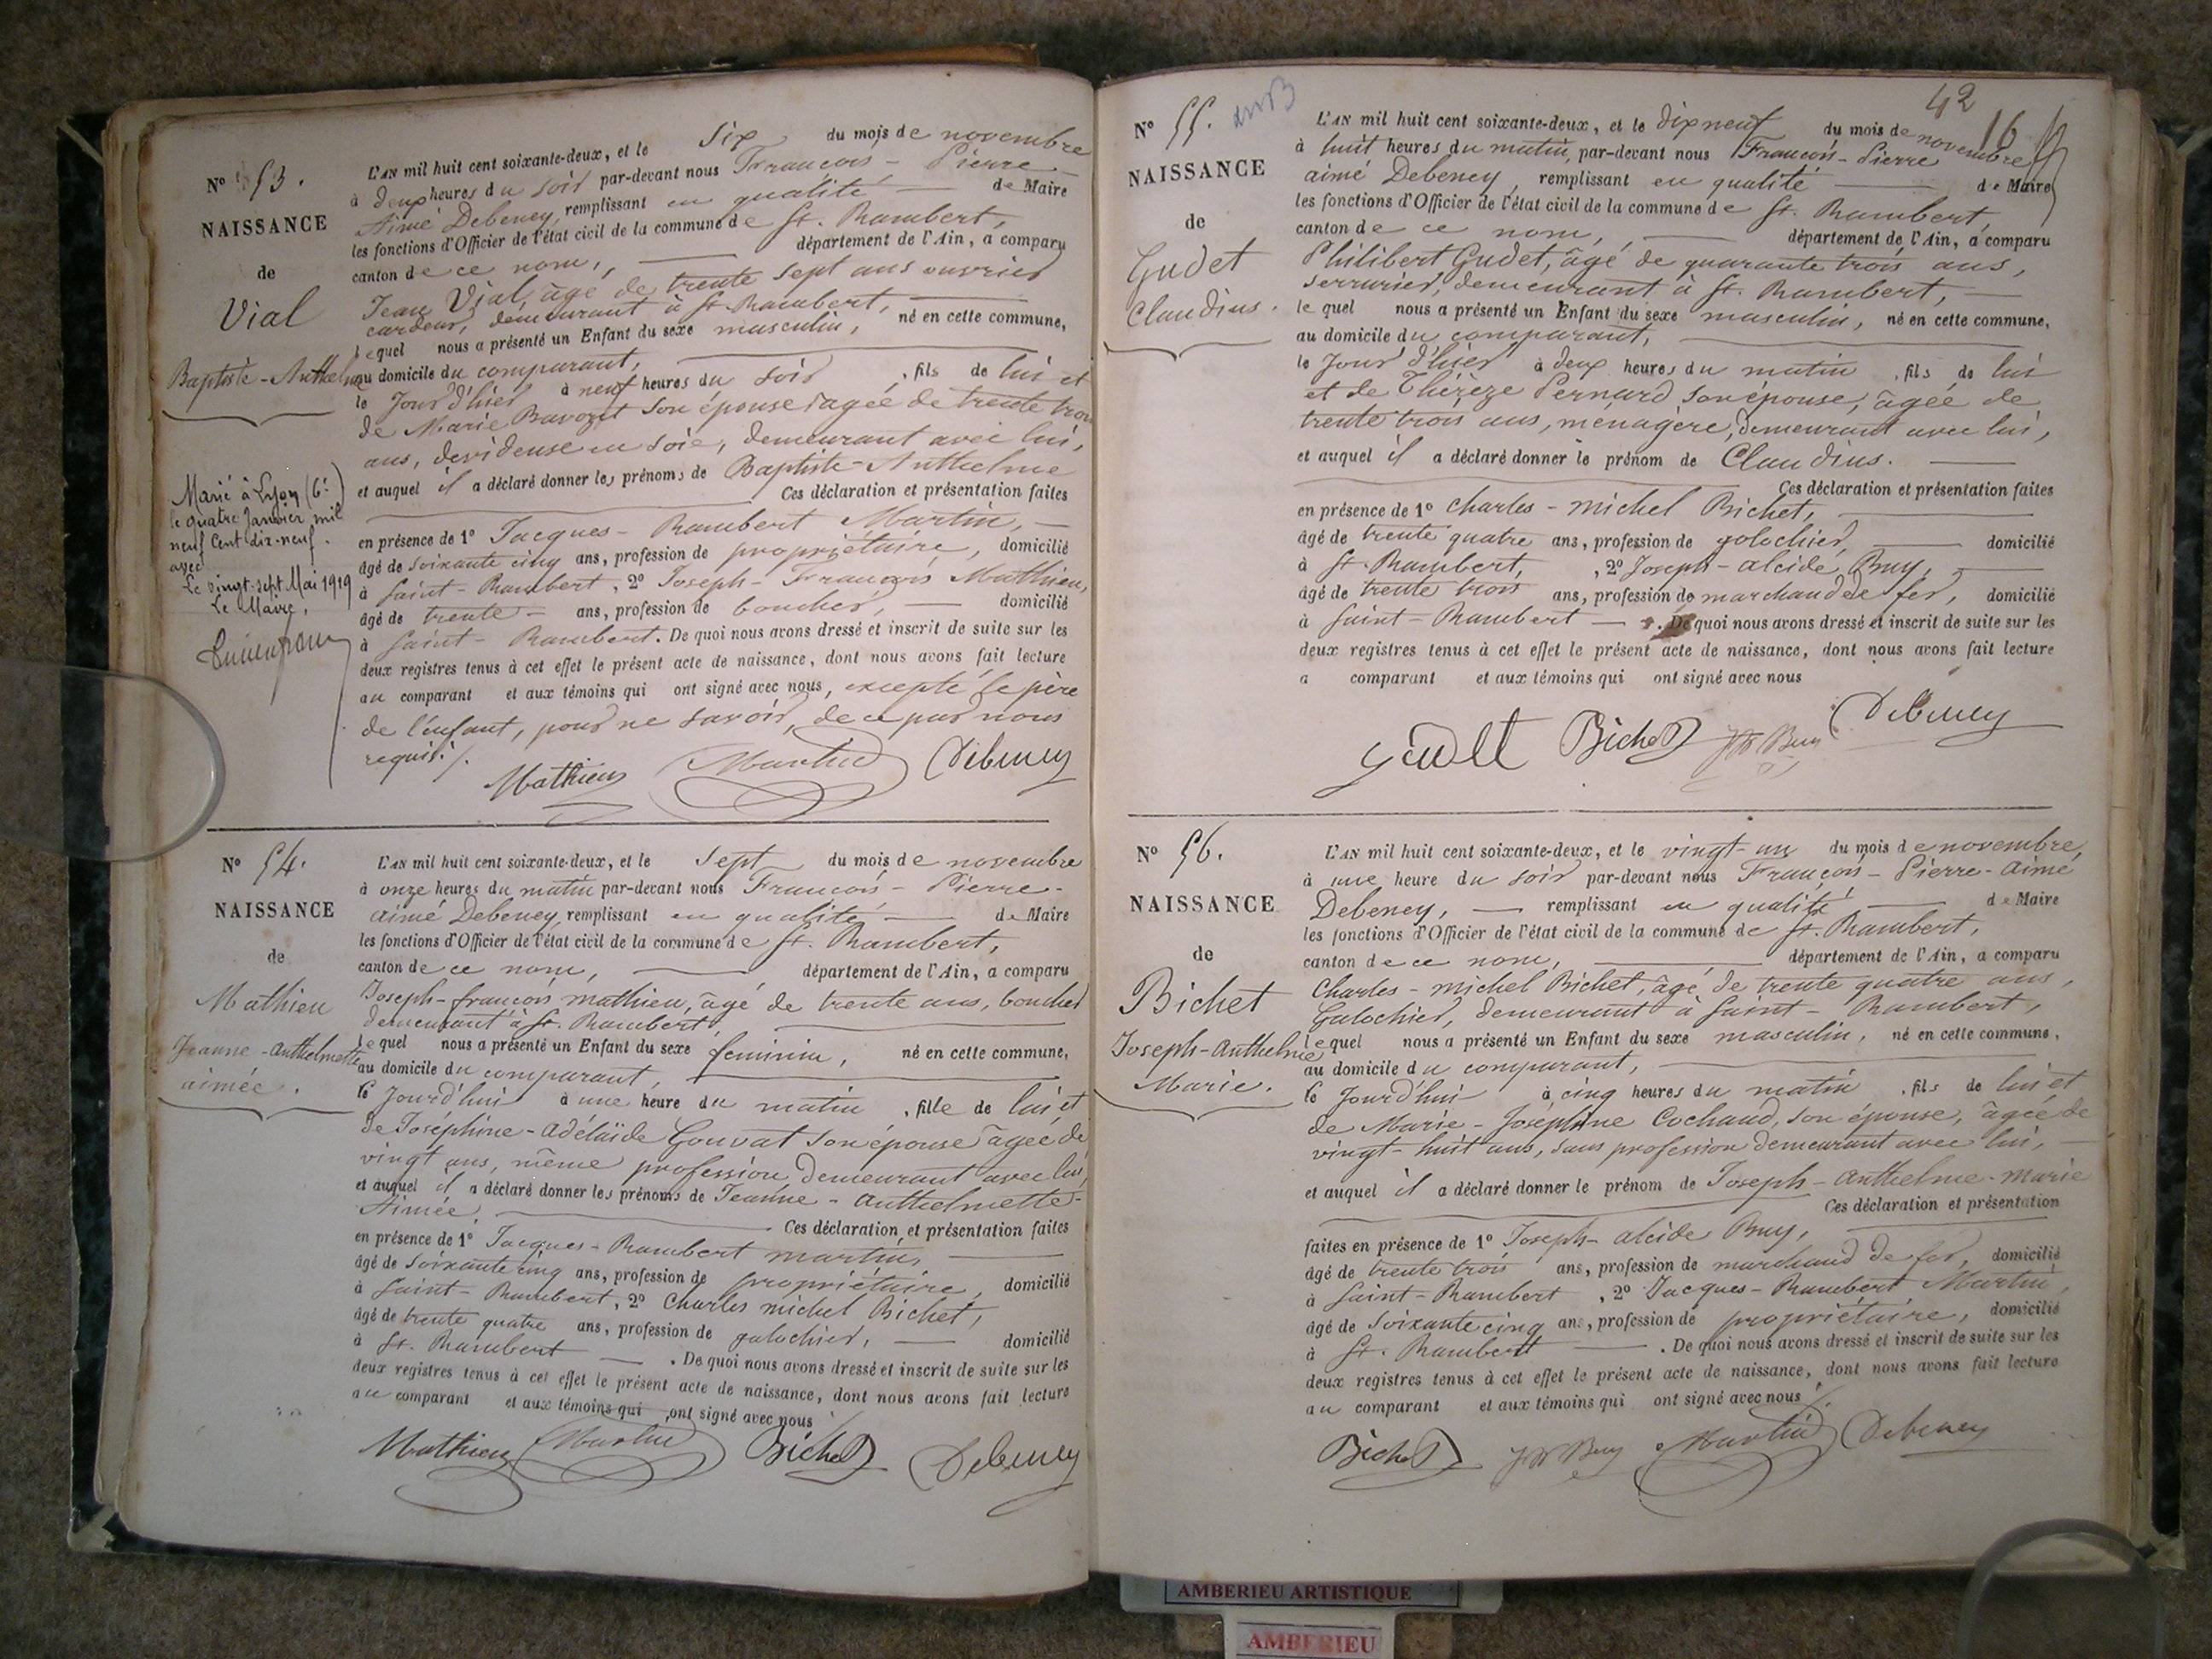 No 53.
NAISSANCE
de
Vial
Baptiste-Anthelme
Marié à Lyon (6e)
le quatre Janvier mil
neuf cent dix-neuf.
avec
Le vingt-sept Mai 1919
Le Maire,
L'AN mil huit cent soixante-deux, et le Six du mois de novembre
à deux heures du soir par-devant nous François-Pierre
Aimé Debeney, remplissant en qualité de Maire
les fonctions d'Officier de l'état civil de la commune de St. Rambert,
canton de ce nom, département de l'Ain, a comparu
Jean Vial, âgé de trente sept ans ouvrier
cardeur, demeurant à St. Rambert,
lequel nous a présenté un Enfant du sexe masculin, né en cette commune,
au domicile du comparant,
le Jour d'hier à neuf heures du soir, fils de lui et
de Marie Bavozet son épouse âgée de trente trois
ans, devideuse en soie, demeurant avec lui,
et auquel il a déclaré donner les prénoms de Baptiste-Anthelme
Ces déclaration et présentation faites
en présence de 1º Jacques-Rambert Martin,
âgé de soixante cinq ans, profession de propriétaire, domicilié
à Saint-Rambert, 2º Joseph-François Mathieu,
âgé de trente ans, profession de boucher, domicilié
à Saint-Rambert. De quoi nous avons dressé et inscrit de suite sur les
deux registres tenus à cet effet le présent acte de naissance, dont nous avons fait lecture
au comparant et aux témoins qui ont signé avec nous, excepté le père
de l'enfant, pour ne savoir, de ce par nous
requis./.
Mathieu Martin Debeney
No 54.
NAISSANCE
de
Mathieu
Jeanne-Anthelmette
aimée.
L'AN mil huit cent soixante-deux, et le Sept du mois de novembre
à onze heures du matin par-devant nous François-Pierre-
aimé Debeney, remplissant en qualité de Maire
les fonctions d'Officier de l'état civil de la commune de St. Rambert,
canton de ce nom, département de l'Ain, a comparu
Joseph-françois mathieu, âgé de trente ans, boucher
demeurant à St. Rambert,
lequel nous a présenté un Enfant du sexe feminin, né en cette commune,
au domicile du comparant,
le Jourd'hui à une heure du matin, fille de lui et
de Joséphine-Adélaïde Gouvat son épouse âgée de
vingt ans, même profession, demeurant avec lui,
et auquel il a déclaré donner les prénoms de Jeanne-anthelmette-
Aimée. Ces déclaration et présentation faites
en présence de 1º Jacques-Rambert martin,
âgé de soixante cinq ans, profession de propriétaire, domicilié
à Saint-Rambert, 2º Charles michel Bichet,
âgé de trente quatre ans, profession de galochier, domicilié
à St. Rambert. De quoi nous avons dressé et inscrit de suite sur les
deux registres tenus à cet effet le présent acte de naissance, dont nous avons fait lecture
au comparant et aux témoins qui ont signé avec nous
Mathieu Martin Bichet Debeney
42
16
No 55.
NAISSANCE
de
Gudet
Claudius.
L'AN mil huit cent soixante-deux, et le dix neuf du mois de novembre
à huit heures du matin, par-devant nous François-Pierre
aimé Debeney, remplissant en qualité de Maire
les fonctions d'Officier de l'état civil de la commune de St. Rambert,
canton de ce nom, département de l'Ain, a comparu
Philibert Gudet, âgé de quarante trois ans,
serrurier, demeurant à St. Rambert,
lequel nous a présenté un Enfant du sexe masculin, né en cette commune,
au domicile du comparant,
le Jour d'hier à deux heures du matin, fils de lui
et de Thérèze Pernard son épouse, âgée de
trente trois ans, ménagère, demeurant avec lui,
et auquel il a déclaré donner le prénom de Claudius.
Ces déclaration et présentation faites
en présence de 1º Charles-michel Bichet,
âgé de trente quatre ans, profession de galochier, domicilié
à St. Rambert, 2º Joseph-alcide Buy,
âgé de trente trois ans, profession de marchand de fer, domicilié
à Saint-Rambert. De quoi nous avons dressé et inscrit de suite sur les
deux registres tenus à cet effet le présent acte de naissance, dont nous avons fait lecture
a comparant et aux témoins qui ont signé avec nous
Bichet Buy Debeney
No 56.
NAISSANCE
de
Bichet
Joseph-Anthelme
Marie.
L'AN mil huit cent soixante-deux, et le vingt-un du mois de novembre,
à une heure du soir par-devant nous François-Pierre-aimé
Debeney, remplissant en qualité de Maire
les fonctions d'Officier de l'état civil de la commune de St. Rambert,
canton de ce nom, département de l'Ain, a comparu
Charles-michel Bichet, âgé de trente quatre ans,
Galochier, demeurant à Saint-Rambert,
lequel nous a présenté un Enfant du sexe masculin, né en cette commune,
au domicile du comparant,
le Jourd'hui à cinq heures du matin, fils de lui et
de Marie-Joséphine Cochaud, son épouse, âgée de
vingt-huit ans, sans profession demeurant avec lui,
et auquel il a déclaré donner le prénom de Joseph-anthelme-marie
Ces déclaration et présentation
faites en présence de 1º Joseph-alcide Buy,
âgé de trente trois ans, profession de marchand de fer, domicilié
à Saint-Rambert, 2º Jacques-Rambert Martin
âgé de soixante cinq ans, profession de propriétaire, domicilié
à St. Rambert. De quoi nous avons dressé et inscrit de suite sur les
deux registres tenus à cet effet le présent acte de naissance, dont nous avons fait lecture
au comparant et aux témoins qui ont signé avec nous ./.
Bichet Buy Martin Debeney
AMBERIEU ARTISTIQUE
AMBERIEU